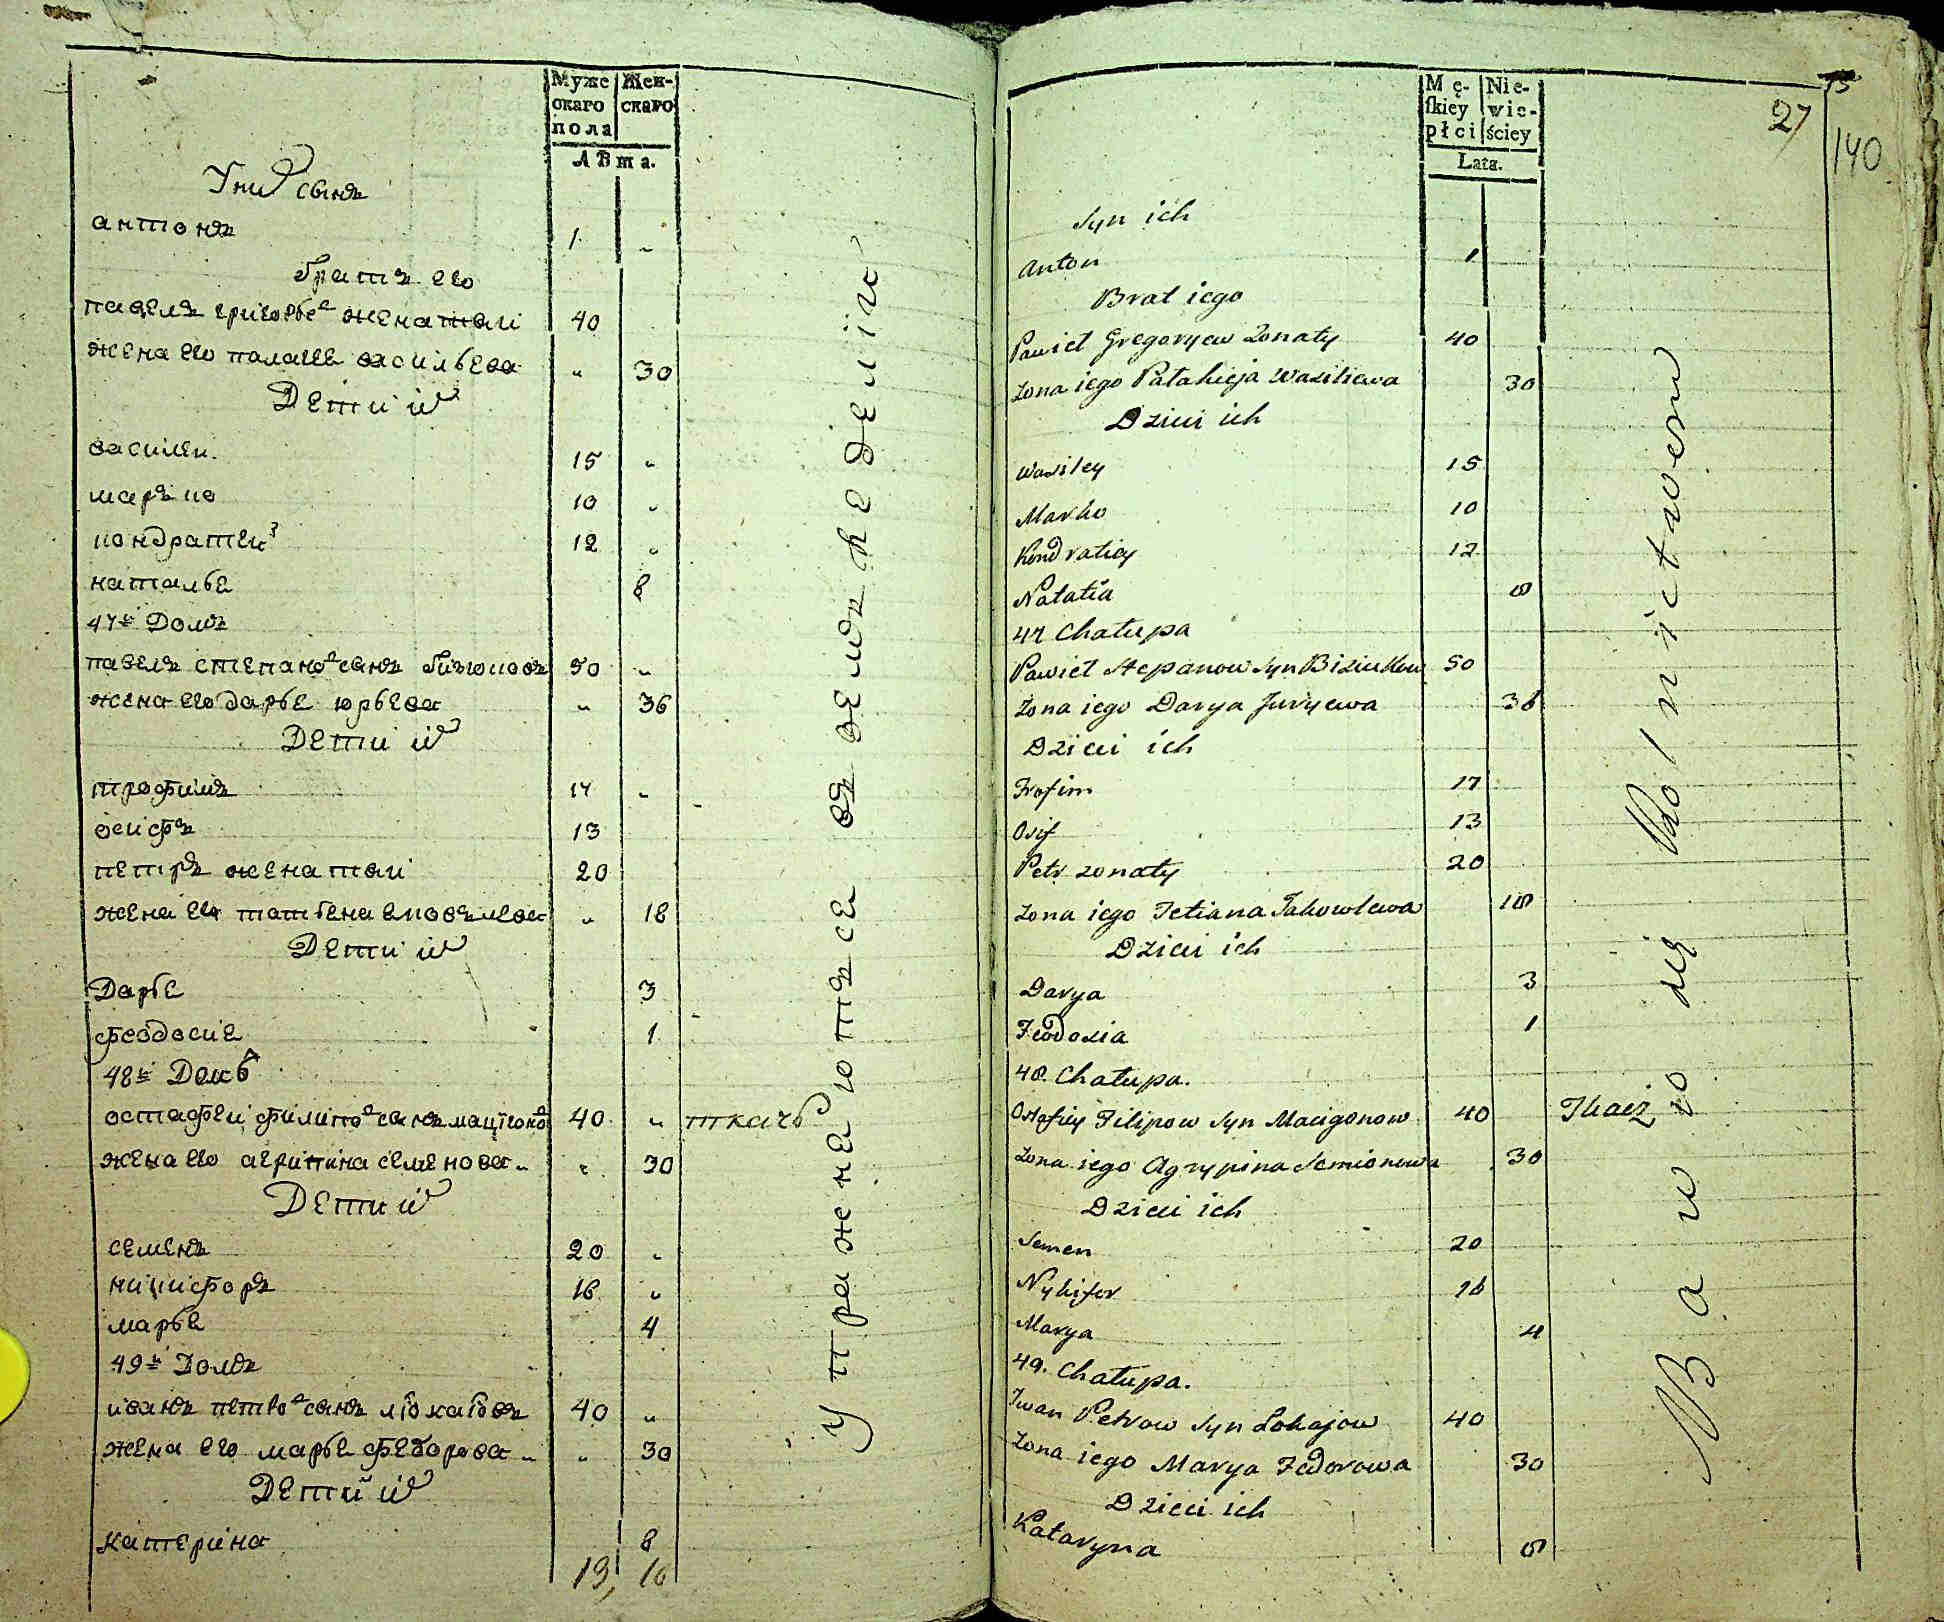 Муже Жен-
скаго скаго
пола
Лѣта.
У них сынъ
антонъ 1 „
братъ его
павелъ григорьев женатыи 40
жена его палагея васильева „ 30
Дети их
васили 15 „
марко 10 „
кондратеи 12 „
наталье 8
47й Домъ
павелъ степанов сынъ бизюковъ 50 „
жена его дарье юрьева „ 36
Дети их
трофимъ 17 „
осифъ 13
петръ женатыи 20
жена его татьена „ 18
Дети их
Дарье 3
феодосие 1
48й Домъ
остафеи филипов сынъ мацыгонов 40 „ ткачь
жена его агрипина семенова „ 30
Дети их
семенъ 20 „
никифоръ 16 „
марье 4
49й Домъ
иванъ петров сынъ локаиовъ 40 „
жена его марье федорова „ 30
Дети их
катерина 8
19, 16
Упражнеютъсе въ земледелии
Mę- Nie-
skiey wie-
płci ściey
Lata.
27
140
Syn ich
Anton 1
Brat iego
Pawieł Gregoryew Zonaty 40
Zona iego Pałahieja Wasiliewa 30
Dzieci ich
Wasiley 15
Marko 10
Kondratiey 12
Natalia 8
47 Chałupa
Pawieł Stepanow Syn Biziukow 50
Zona iego Darya Juryewa 36
Dzieci ich
Trofim 17
Osif 13
Petr zonaty 20
Zona iego Tetiana Jakowlewa 18
Dzieci ich
Darya 3
Feodosia 1
48. Chałupa.
Ostafiey Filipow Syn Macigonow 40 Tkacz
Zona iego Agrypina Semionowa 30
Dzieci ich
Semen 20
Nykifor 16
Marya 4
49. Chałupa.
Iwan Petrow Syn Łokajow 40
Zona iego Marya Fedorowa 30
Dzieci ich
Kataryna 8
Bawio się Rolnictwem